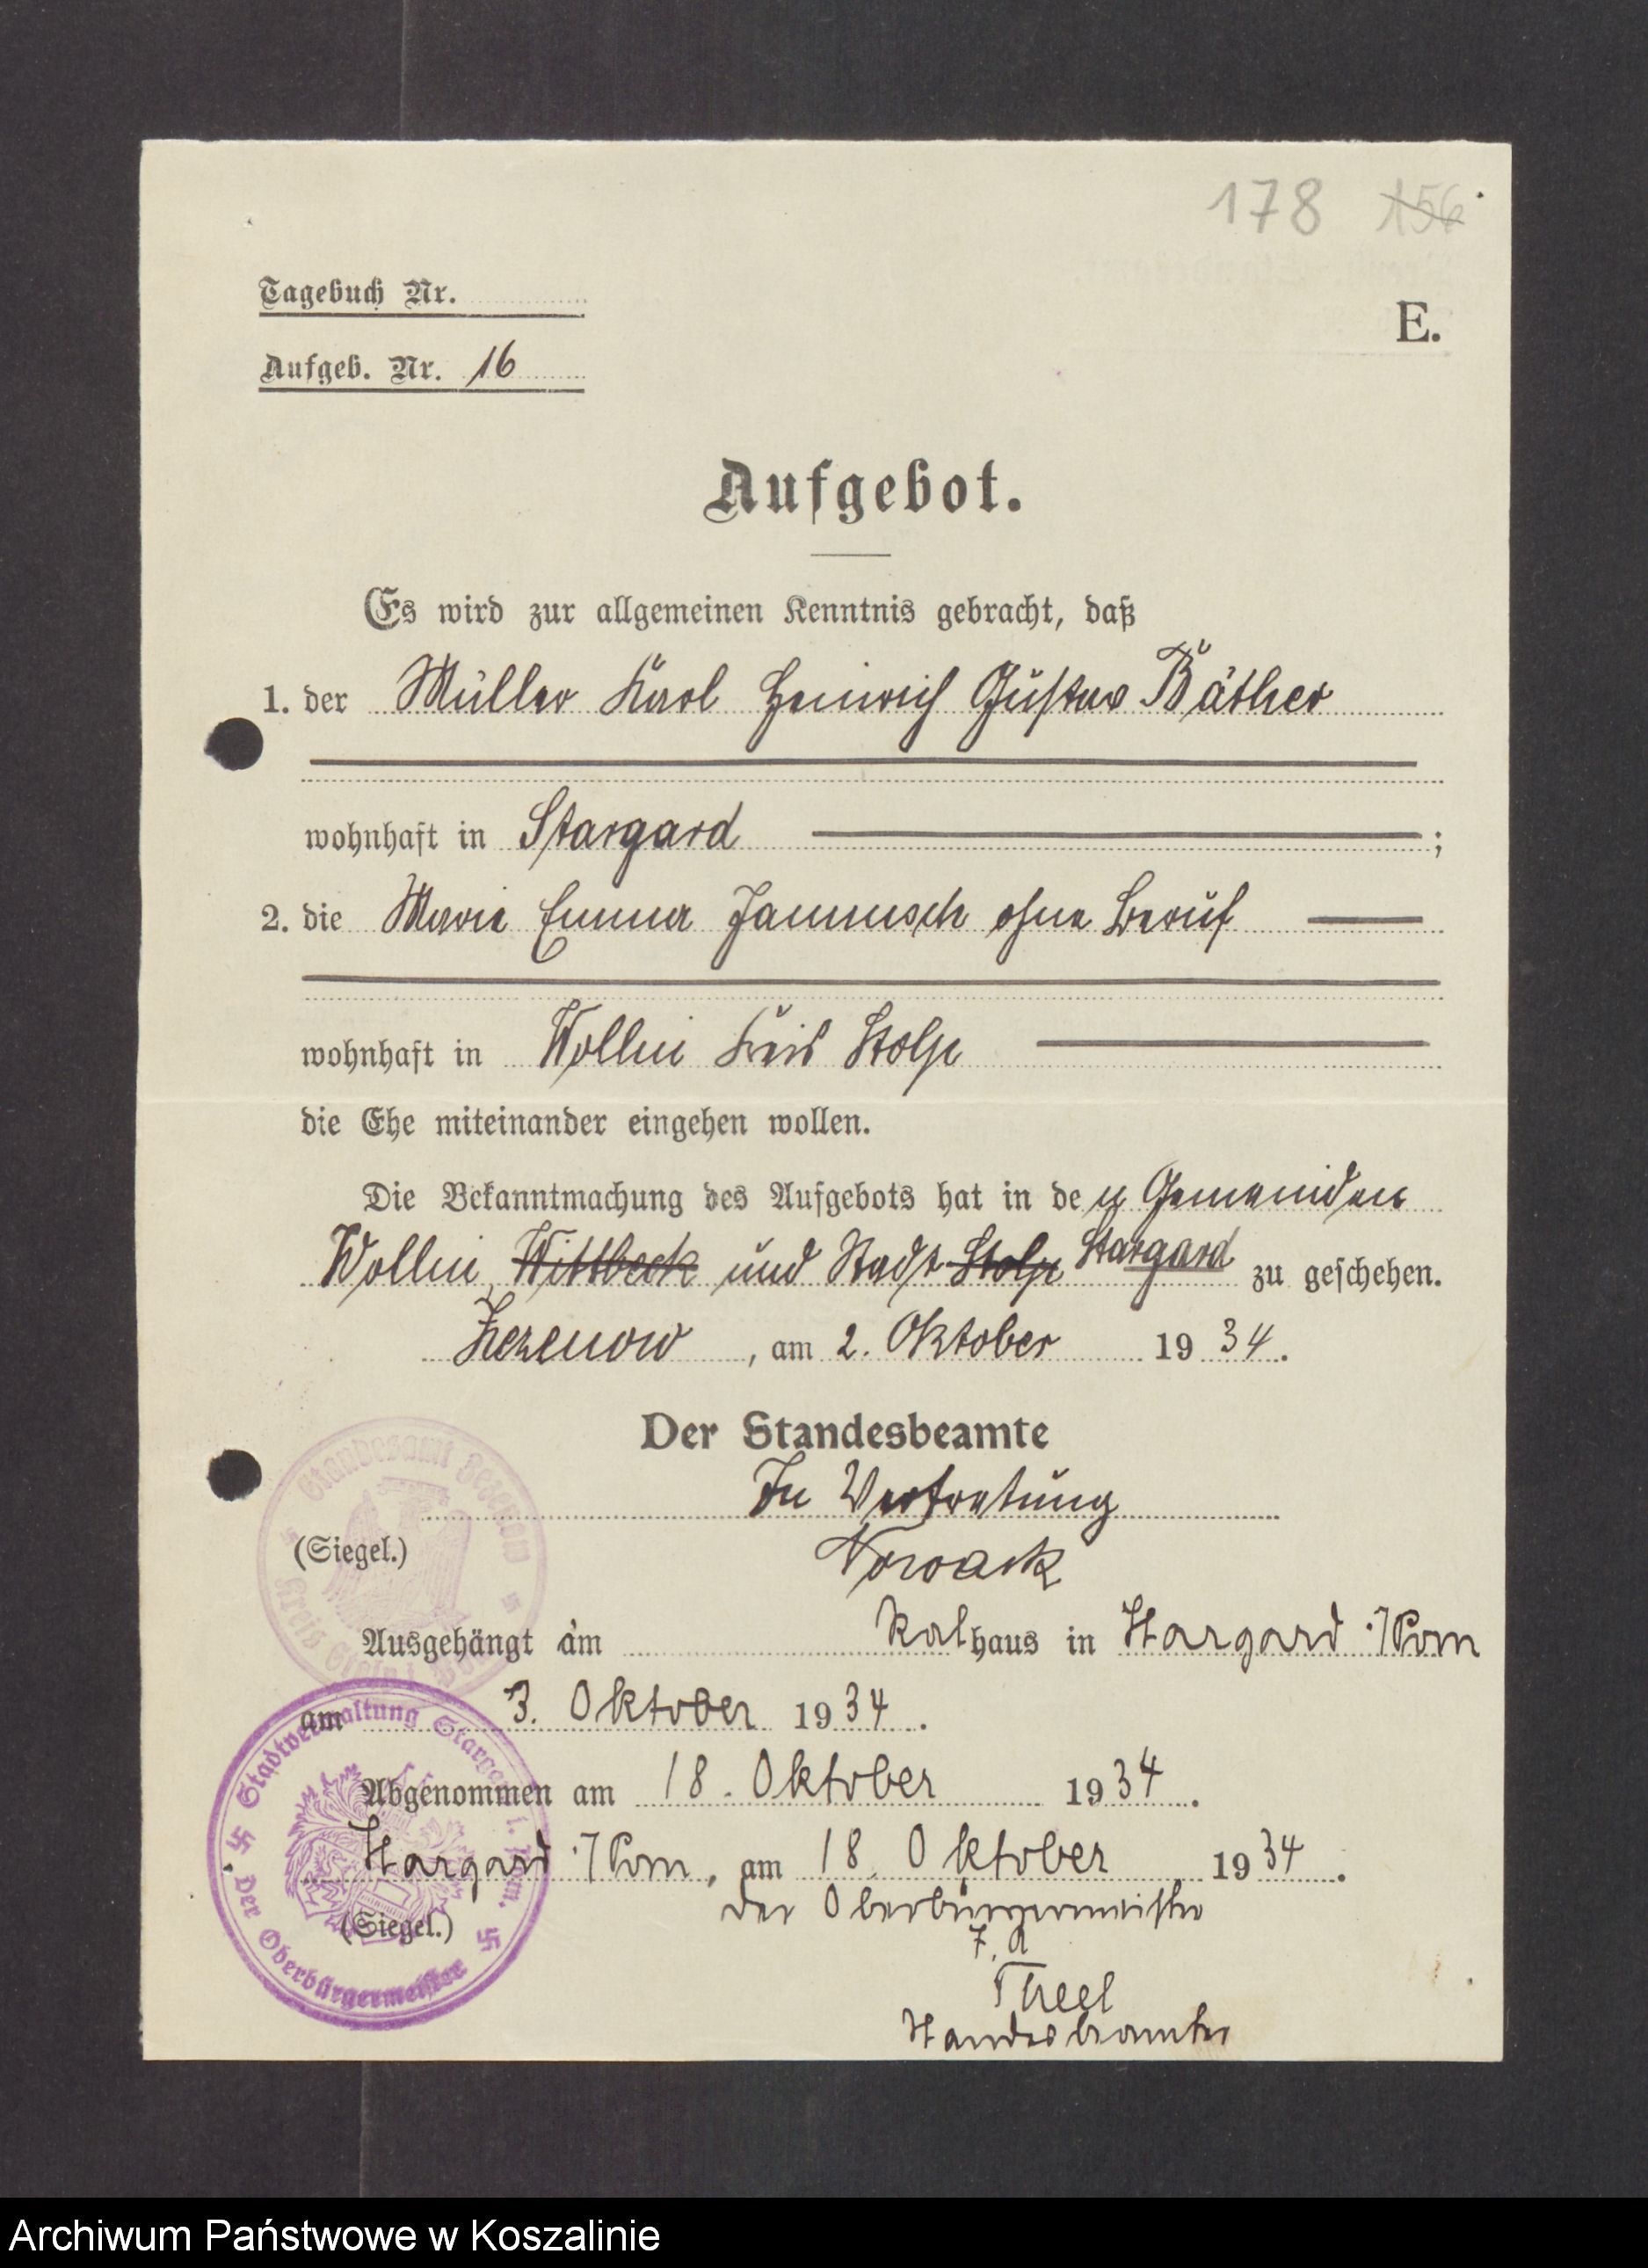 178 156
Tagebuch Nr.
E.
Aufgeb. Nr. 16
Aufgebot.
Es wird zur allgemeinen Kenntnis gebracht, daß
1. der Müller Karl Heinrich Gustav Bäther
wohnhaft in Stargard ;
2. die Marie Emma Jannusch ohne Beruf
wohnhaft in Wollin Kreis Stolp
die Ehe miteinander eingehen wollen.
Die Bekanntmachung des Aufgebots hat in den Gemeinden
Wollin, Wittbeck und Stadt Stolp Stargard zu geschehen.
Zezenow, am 2. Oktober 1934.
Der Standesbeamte
In Vertretung
(Siegel.)
Nowack
Standesamt Zezenow
Kreis Stolp
Ausgehängt am Rathaus in Stargard i/Pom
am 3. Oktober 1934.
Abgenommen am 18. Oktober 1934.
Stargard i/Pom, am 18. Oktober 1934.
(Siegel.)
Stadtverwaltung Stargard i. Pom.
Der Oberbürgermeister
der Oberbürgermeister
J. A
Theel
Standesbeamter
Archiwum Państwowe w Koszalinie